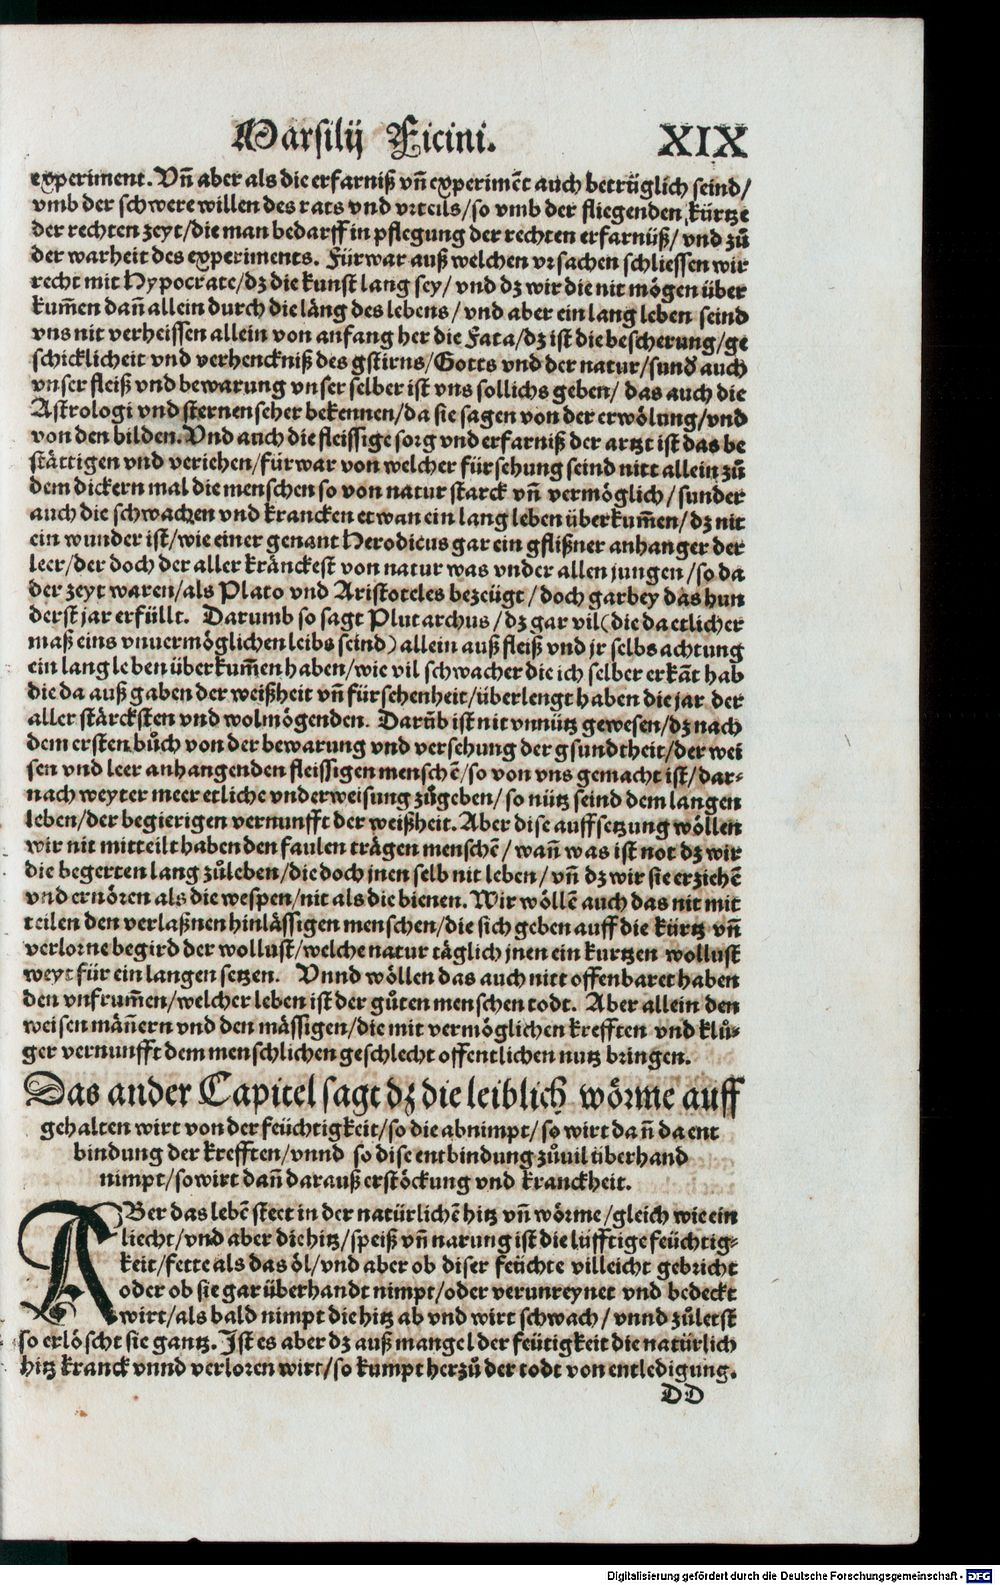 Marsilij Ficini. XIX
experiment. Vn̄ aber als die erfarniß vn̄ experimēt auch betrüglich seind/
vmb der schwere willen des rats vnd vrteils/so vmb der fliegenden kürtze
der rechten zeyt/die man bedarff in pflegung der rechten erfarnüß/ vnd zů
der warheit des experiments. Fürwar auß welchen vrsachen schliessen wir
recht mit Hypocrate/dz die kunst lang sey/ vnd dz wir die nit mögen über
kum̄en dan̄ allein durch die läng des lebens/ vnd aber ein lang leben seind
vns nit verheissen allein von anfang her die Fata/dz ist die bescherung/ge
schicklicheit vnd verhenckniß des gstirns/Gotts vnd der natur/sund̄ auch
vnser fleiß vnd bewarung vnser selber ist vns sollichs geben/ das auch die
Astrologi vnd sternenseher bekennen/da sie sagen von der erwölung/vnd
von den bilden. Vnd auch die fleissige sorg vnd erfarniß der artzt ist das be
stättigen vnd veriehen/fürwar von welcher fürsehung seind nitt allein zů
dem dickern mal die menschen so von natur starck vn̄ vermöglich/sunder
auch die schwachen vnd krancken etwan ein lang leben überkum̄en/dz nit
ein wunder ist/wie einer genant Herodicus gar ein gflißner anhanger der
leer/der doch der aller kränckest von natur was vnder allen jungen/so da
der zeyt waren/als Plato vnd Aristoteles bezeügt/doch garbey das hun
derst jar erfüllt. Darumb so sagt Plutarchus/dz gar vil(die da etlicher
maß eins vnuermöglichen leibs seind)allein auß fleiß vnd jr selbs achtung
ein lang leben überkum̄en haben/wie vil schwacher die ich selber erkāt hab
die da auß gaben der weißheit vn̄ fürsehenheit/überlengt haben die jar der
aller stärcksten vnd wolmögenden. Darūb ist nit vnnütz gewesen/dz nach
dem ersten bůch von der bewarung vnd versehung der gsundtheit/der wei
sen vnd leer anhangenden fleissigen menschē/so von vns gemacht ist/dar-
nach weyter meer etliche vnderweisung zůgeben/so nütz seind dem langen
leben/der begierigen vernunfft der weißheit. Aber dise auffsetzung wöllen
wir nit mitteilt haben den faulen trägen menschē/ wan̄ was ist not dz wir
die begerten lang zůleben/die doch jnen selb nit leben/ vn̄ dz wir sie erziehē
vnd ernören als die wespen/nit als die bienen. Wir wöllē auch das nit mit
teilen den verlaßnen hinlässigen menschen/die sich geben auff die kürtz vn̄
verlorne begird der wollust/welche natur täglich jnen ein kurtzen wollust
weyt für ein langen setzen. Vnnd wöllen das auch nitt offenbaret haben
den vnfrum̄en/welcher leben ist der gůten menschen todt. Aber allein den
weisen män̄ern vnd den mässigen/die mit vermöglichen krefften vnd klů-
ger vernunfft dem menschlichen geschlecht offentlichen nutz bringen.
Das ander Capitel sagt dz die leiblich wörme auff
gehalten wirt von der feüchtigkeit/so die abnimpt/so wirt dan̄ da ent
bindung der krefften/vnnd so dise entbindung zůuil überhand
nimpt/so wirt dan̄ darauß erstöckung vnd kranckheit.
ABer das lebē stect in der natürlichē hitz vn̄ wörme/gleich wie ein
liecht/vnd aber die hitz/speiß vn̄ narung ist die lüfftige feüchtig-
keit/fette als das öl/vnd aber ob diser feüchte villeicht gebricht
oder ob sie gar überhandt nimpt/oder verunreynet vnd bedeckt
wirt/als bald nimpt die hitz ab vnd wirt schwach/ vnnd zůletst
so erlöscht sie gantz. Ist es aber dz auß mangel der feütigkeit die natürlich
hitz kranck vnnd verloren wirt/so kumpt herzů der todt von entledigung.
DD
Digitalisierung gefördert durch die Deutsche Forschungsgemeinschaft - DFG